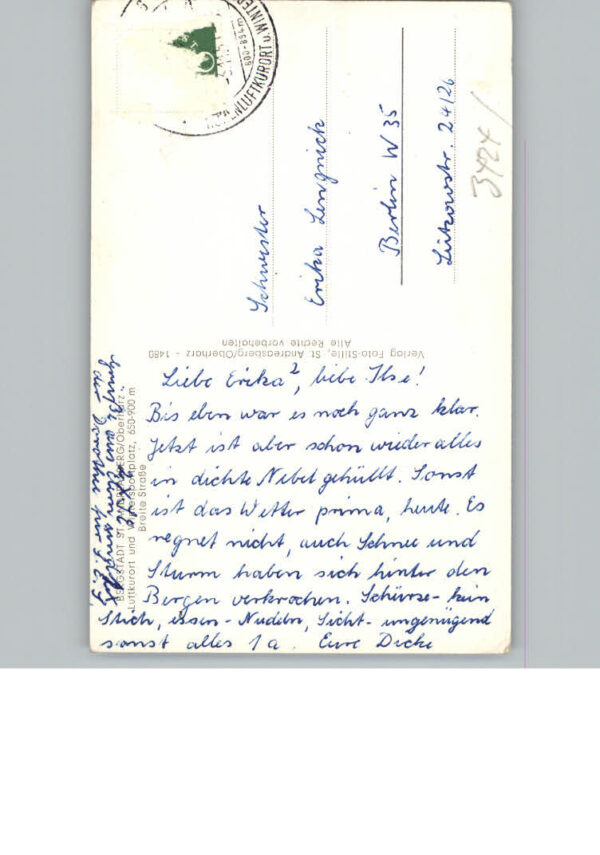 HÖHENLUFTKURORT u. WINTER
600-894m
Schwester
Erika Lengnick
Berlin W 35
Lützowstr. 24/26
3424/
Verlag Foto-Stille, St. Andreasberg/Oberharz - 1480
Alle Rechte vorbehalten
BERGSTADT ST. ANDREASBERG/Oberharz
Luftkurort und Wintersportplatz, 650-900 m
Breite Straße
Liebe Erika², liebe Ilse!
Bis eben war es noch ganz klar.
Jetzt ist aber schon wieder alles
in dichte Nebel gehüllt. Sonst
ist das Wetter prima, heute. Es
regnet nicht, auch Schnee und
Sturm haben sich hinter den
Bergen verkrochen. Schürze- kein
Stich, essen- Nudeln, Sicht- ungenügend
sonst alles 1a. Eure Dicke